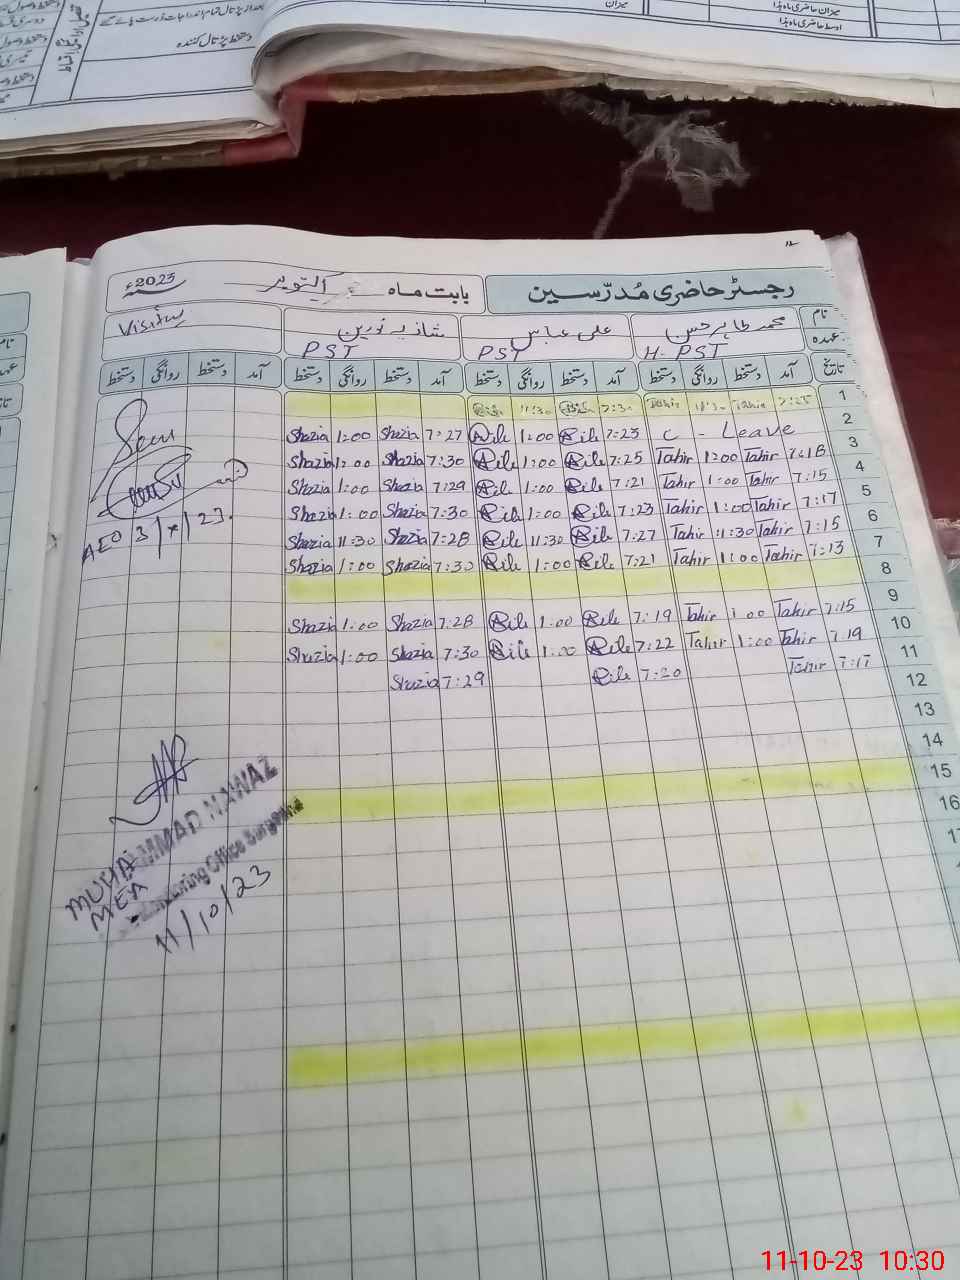 دستخط پڑتال کنندہ
میزان
میزان حاضری ماہ ہذا
اوسط حاضری ماہ ہذا
رجسٹر حاضری مُدرّسین بابت ماہ اکتوبر 2023ء
نام محمد طاہر حسن علی عباس شازیہ نورین Visitors
عہدہ H. PST PST PST
تاریخ آمد دستخط روانگی دستخط آمد دستخط روانگی دستخط آمد دستخط روانگی دستخط آمد دستخط روانگی دستخط
11:30 7:30 11:30 Tahir 7:25 1
Shazia 1:00 Shazia 7:27 1:00 7:23 C - Leave 2
Shazia 1:00 Shazia 7:30 1:00 7:25 Tahir 1:00 Tahir 7:18 3
Shazia 1:00 Shazia 7:29 1:00 7:21 Tahir 1:00 Tahir 7:15 4
Shazia 1:00 Shazia 7:30 1:00 7:23 Tahir 1:00 Tahir 7:17 5
Shazia 11:30 Shazia 7:28 11:30 7:27 Tahir 11:30 Tahir 7:15 6
Shazia 1:00 Shazia 7:30 1:00 7:21 Tahir 1:00 Tahir 7:13 7
8
Shazia 1:00 Shazia 7:28 1:00 7:19 Tahir 1:00 Tahir 7:15 9
Shazia 1:00 Shazia 7:30 1:00 7:22 Tahir 1:00 Tahir 7:19 10
Shazia 7:29 7:20 Tahir 7:17 11
12
13
14
15
16
AEO 3/x/23.
MUHAMMAD NAWAZ
MEA
Monitoring Office Sargodha
11/10/23
11-10-23 10:30